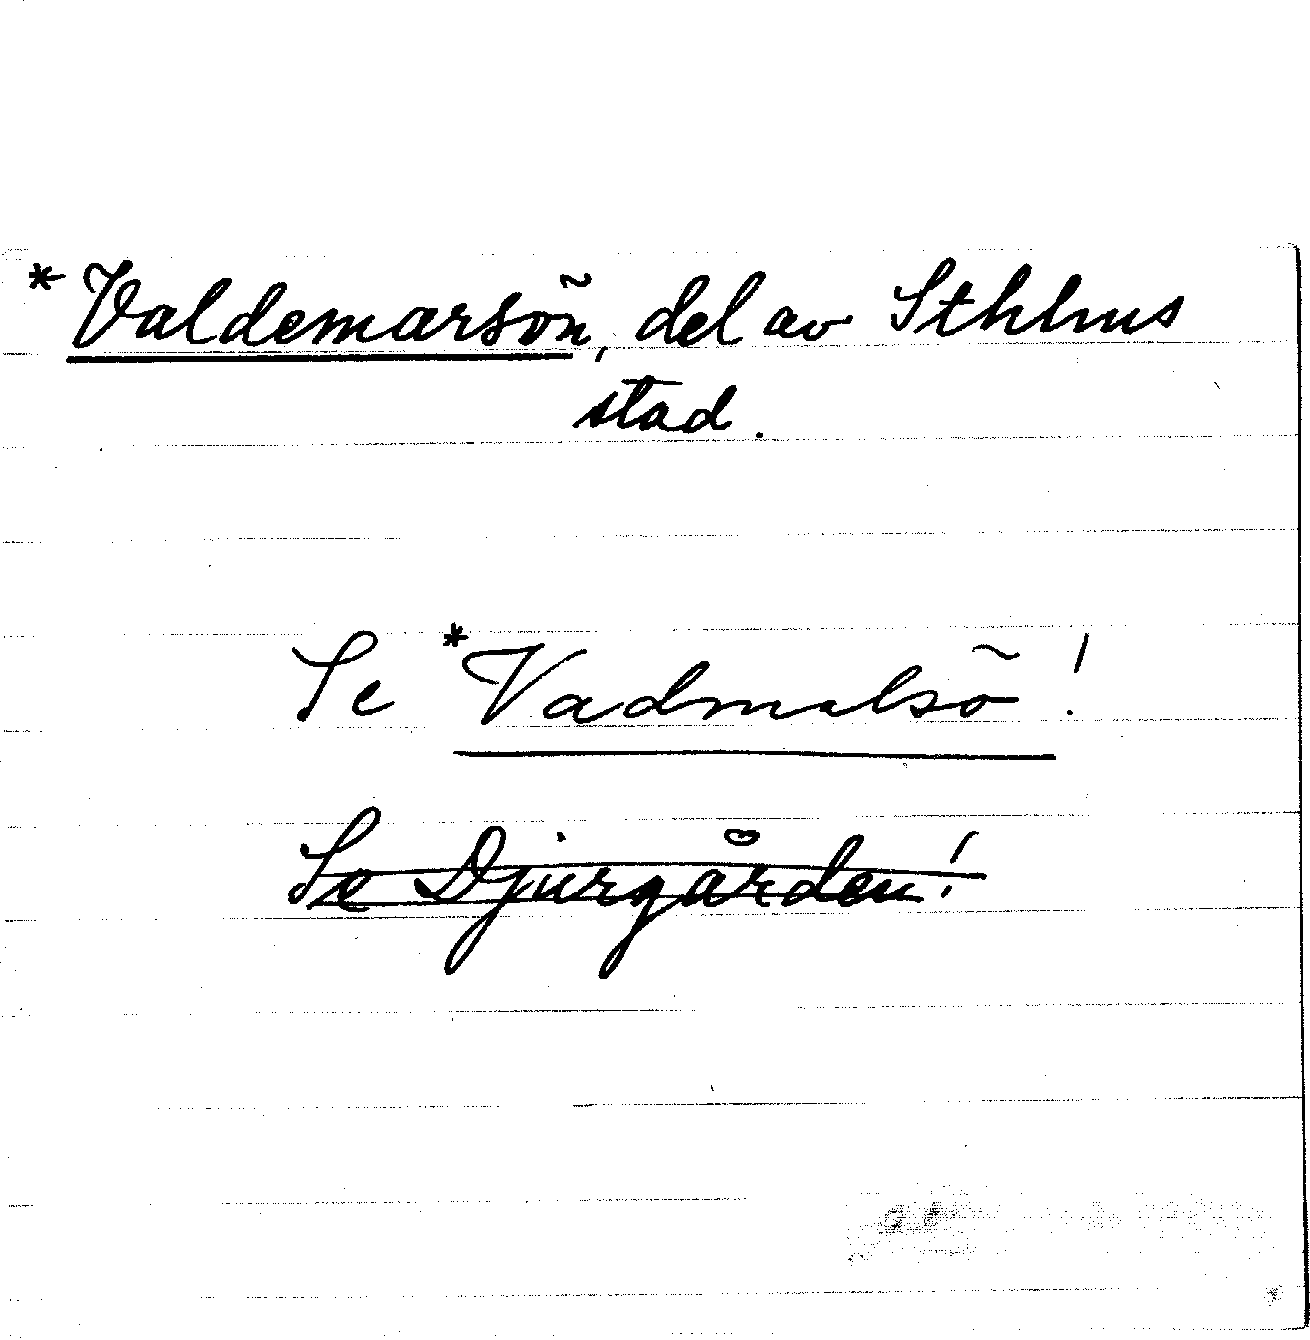 *Valdemarsön, del av Sthlms
stad.
Se *Vadmalsö!
Se Djurgården!